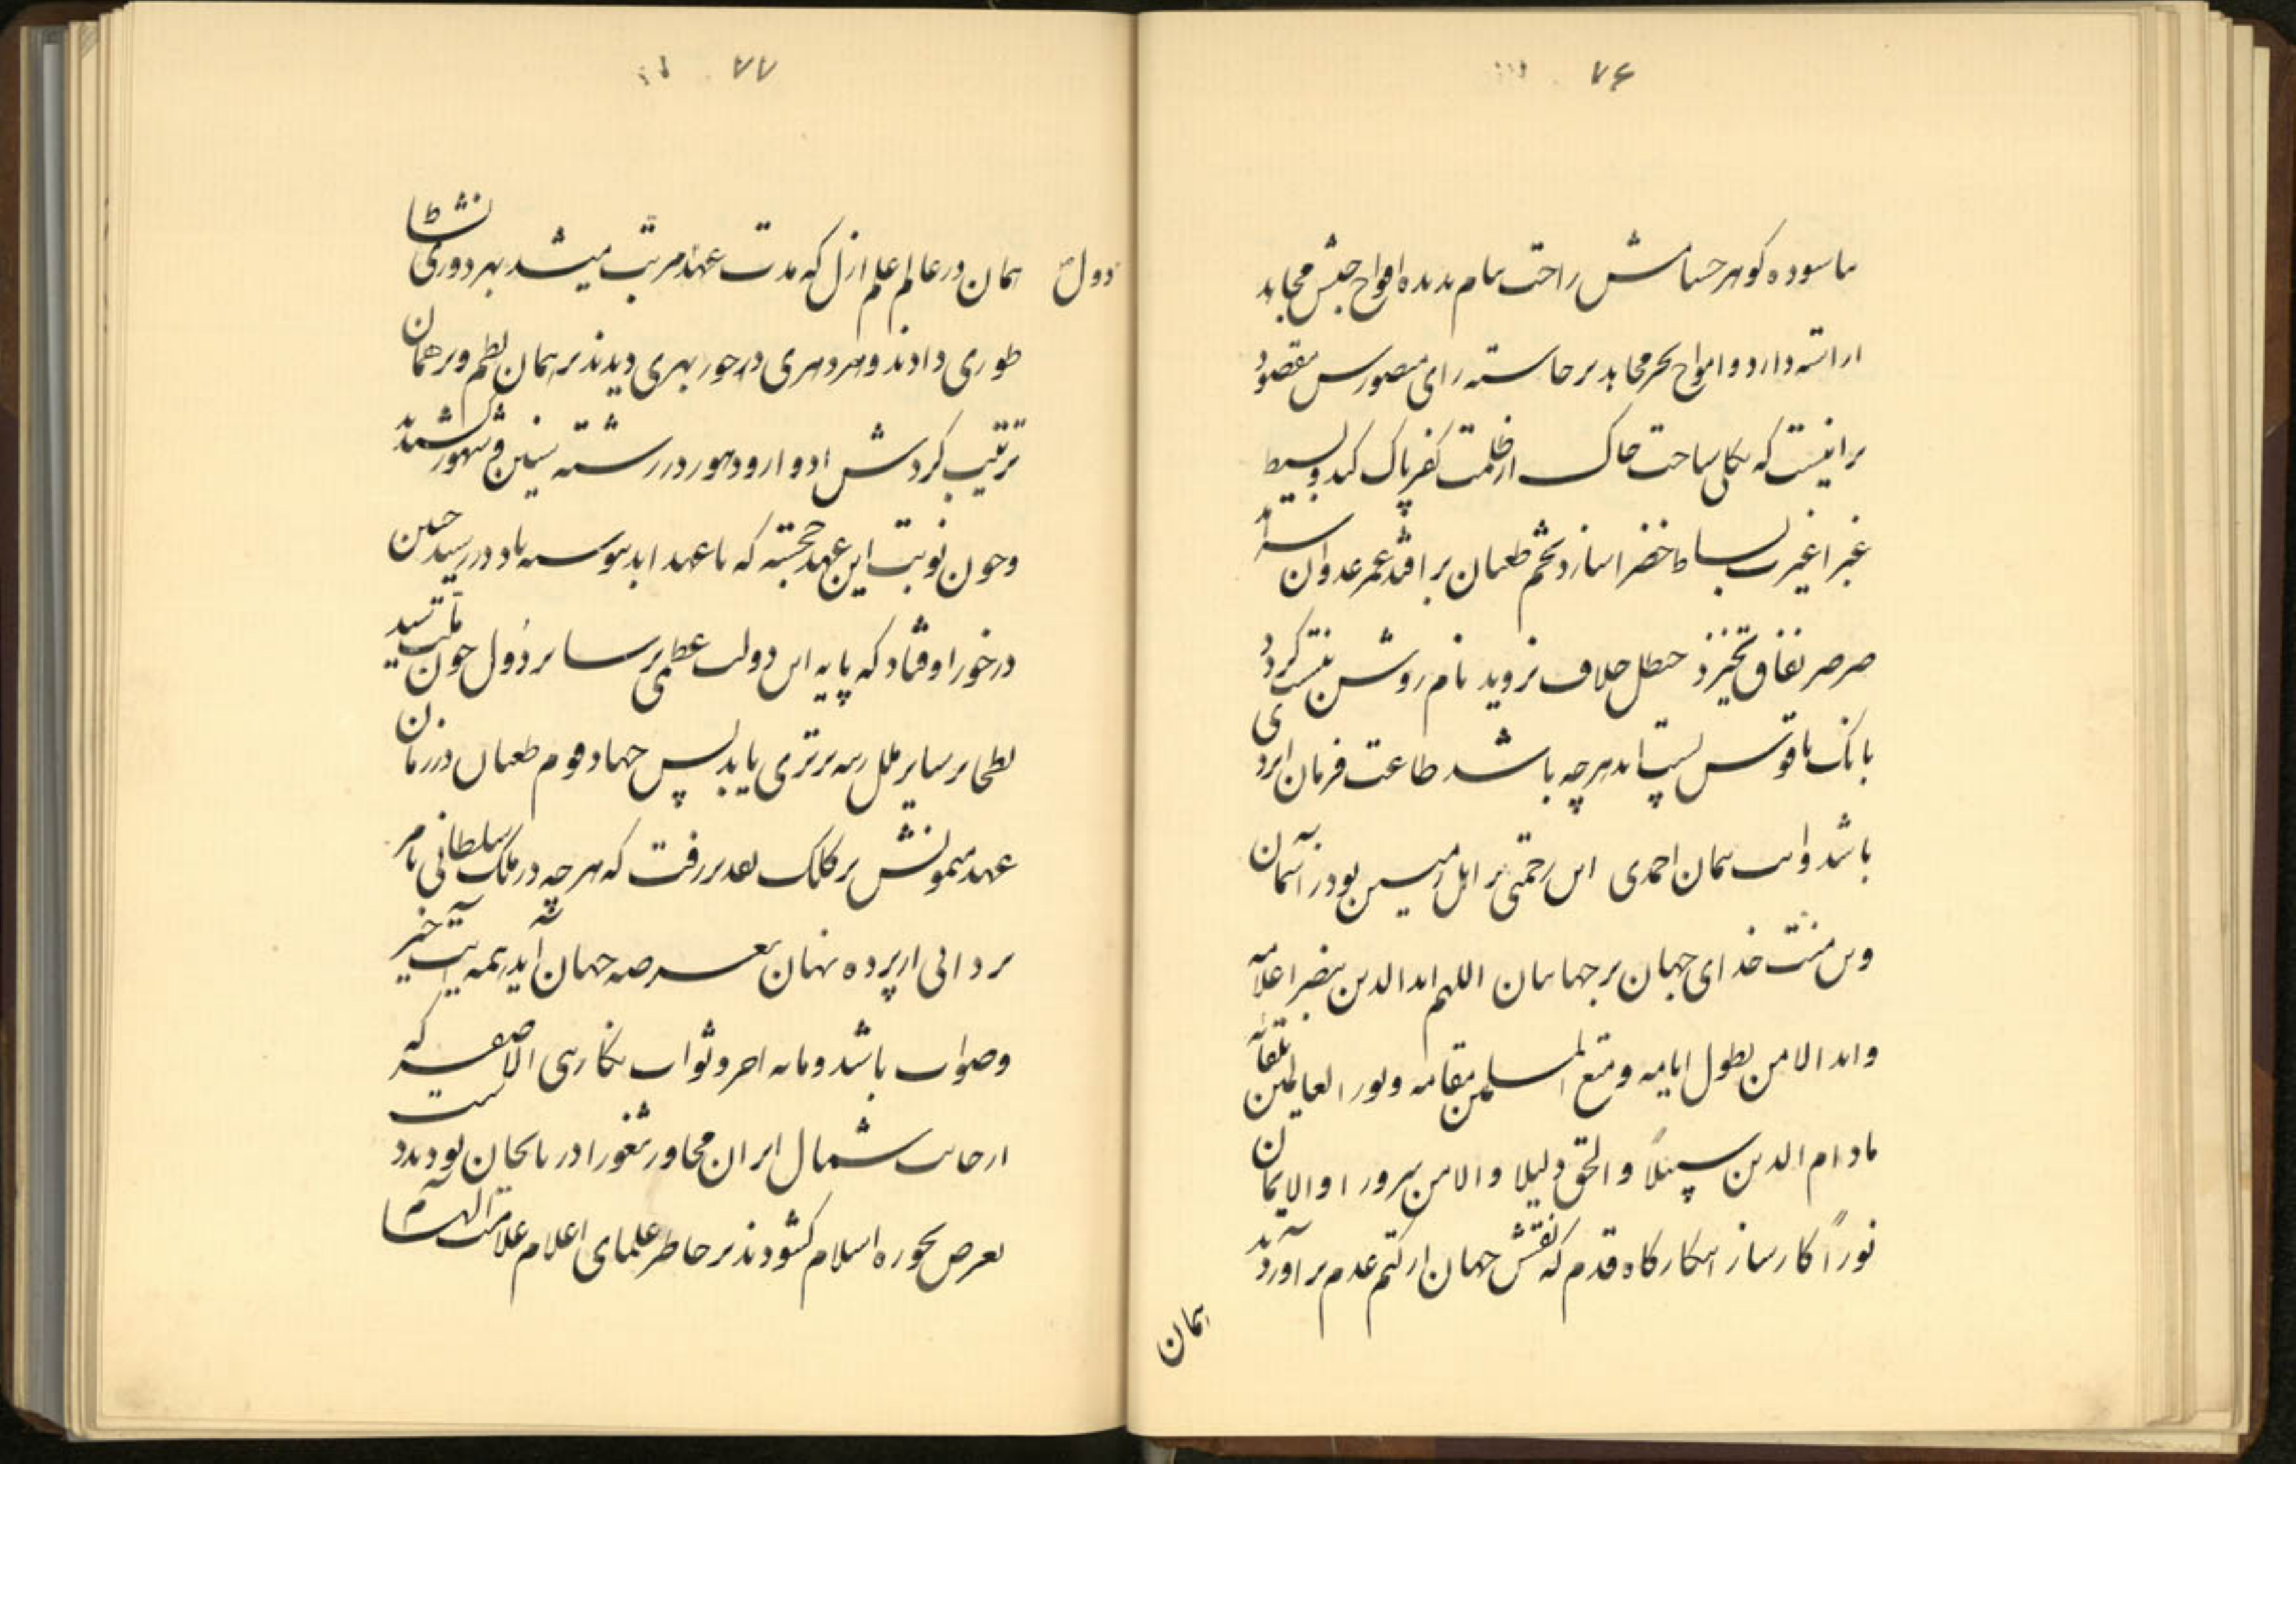 ۷۶
ناسوده گوهر حسامش راحت نیام ندیده افواج جیش مجاهد
اراسته دارد و امواج بحر مجاهد برخاسته رای منصورش مقصود
برانیست که بکلی ساحت خاک از ظلمت کفر پاک کند و بسیط
غبرا غیرت بساط خضرا سازد تخم طغیان برافتد عمر عدوان سراید
صرصر نفاق نخیزد حنظل خلاف نروید نام روشن نیست گردد
بانگ ناقوس پست اید هرچه باشد طاعت فرمان ایزدی
باشد واسب سمان احمدی این رحمتی بر اهل زمین بود ز آسمان
وین منت خدای جهان بر جهانیان اللهم اید الدین بنصر اعلامه
واید الامن بطول ایامه ومتع المسلمین بمقامه ونور العالمین بلقائه
مادام الدین سبیلاً والحق دلیلا والامن سرورا والایمان
نوراً کارساز اینکارگاه قدم که نقش جهان از کتم عدم برآورد
همان
۷۷
همان در عالم علم ازل که مدت عهد مرتب میشد بهر دوری نشاط
دول
طوری دادند و بهر دهری در خور بهری دیدند بر همان نظم و بر همان
ترتیب گردش ادوار و دهور در رشته سنین و شهور کشیدند
وچون نوبت این عهد خجسته که با عهد ابد پیوسته باد در رسید چنین
درخور اوفتاد که پایه این دولت عظمی بر سایر دول چون ملت سید
بطحا بر سایر ملل رسم برتری یابد پس جهاد قوم طغیان در زمان
عهد میمونش بر کلک تقدیر رفت که هرچه در ملک سلطانی بامر
یزدانی از پرده نهان بعرصه جهان آید همه آیت خیر
وصواب باشد ومایه اجر وثواب بنگارهی الاصفر که
از جانب شمال ایران مجاور ثغور اذربایجان بودند دست
تعرض بحوزه اسلام گشودند بر خاطر علمای اعلام علامت الهام